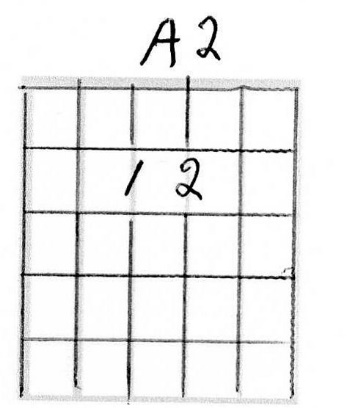 A2
1 2